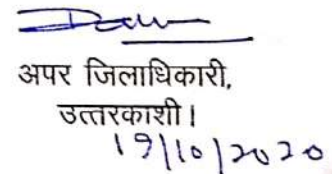 अपर जिलाधिकारी,
उत्तरकाशी।
19/10/2020